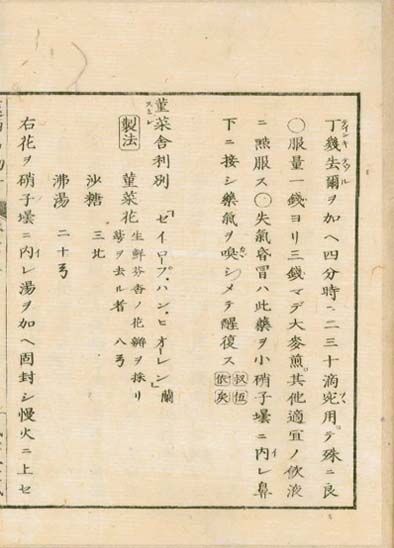 丁幾去爾ヲ加ヘ四分時ニ二三十滴宛用テ殊ニ良
◯服量一錢ヨリ三錢マデ大麥煎其他適宜ノ飲液
ニ點服ス◯失氣昏冒ハ此藥ヲ小硝子壜ニ内レ鼻
下ニ接シ藥氣ヲ嗅シメテ醒復ス
菫菜舎利別 「セイロープ・ハン・ヒオーレン」蘭
製法 菫菜花 生鮮芬香ノ花瓣ヲ採リ
蕚ヲ去ル者 八
沙糖 三
沸湯 二十
右花ヲ硝子壜ニ内レ湯ヲ加ヘ固封シ慢火ニ上セ